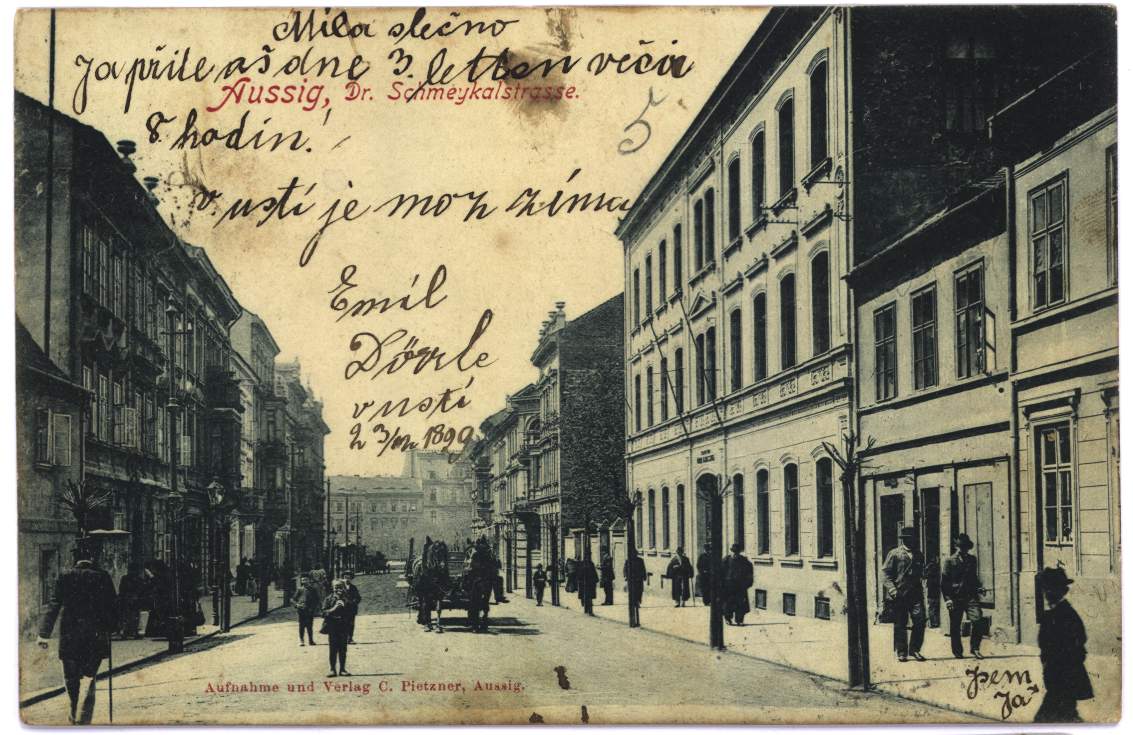 Milá slečno
Ja příle aš dne 3. večír
Aussig, Dr. Schmeykalstrasse.
8 hodin!
5
v ustí je moz zíma
Emíl
v ustí
1899
Aufnahme und Verlag C. Pietzner, Aussig.
Jsem
Ja